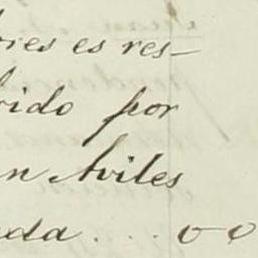 bres es res-
vido por
n Aviles
ada .... oo